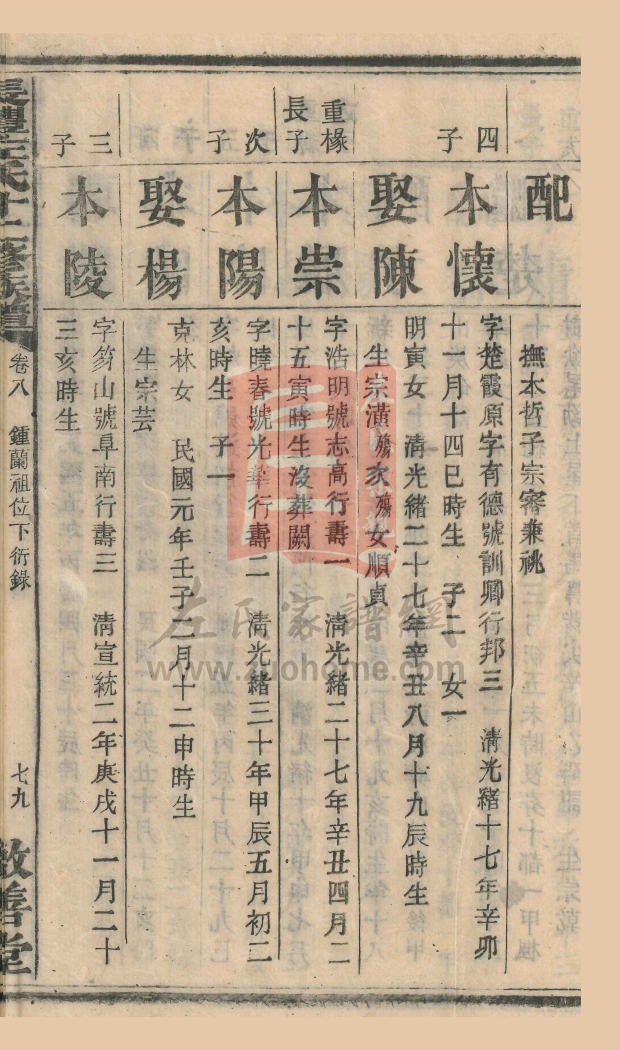 配
撫本哲子宗睿兼祧
四子
本懷
字楚霞原字有德號訓卿行邦三 清光緒十七年辛卯
十一月十四巳時生 子二 女一
娶陳
明寅女 清光緒二十七年辛丑八月十九辰時生
生宗潢殤次殤女順貞
重椽長子
本崇
字浩明號志高行壽一 清光緒二十七年辛丑四月二
十五寅時生沒葬闕
次子
本陽
字曉春號光華行壽二 清光緒三十年甲辰五月初二
亥時生 子一
娶楊
克林女 民國元年壬子二月十二申時生
生宗芸
三子
本陵
字篛山號阜南行壽三 清宣統二年庚戌十一月二十
三亥時生
長澧左氏十二修族譜
卷八 鍾蘭祖位下衍錄
七九
敦善堂
左氏家譜網
www.zuohome.com